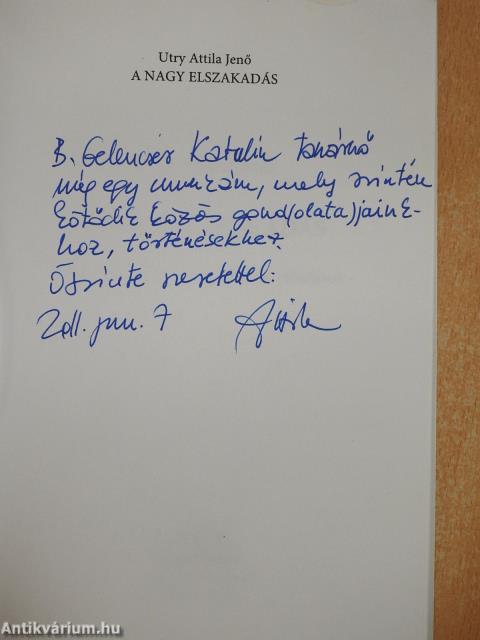 Utry Attila Jenő
A NAGY ELSZAKADÁS
B. Gelencsér Katalin tanárnő
még egy munkám, mely szintén
kötődik közös gond(olata)jaink-
hoz, történésekhez.
Őszinte szeretettel:
2011. jun. 7 Attila
Antikvárium.hu